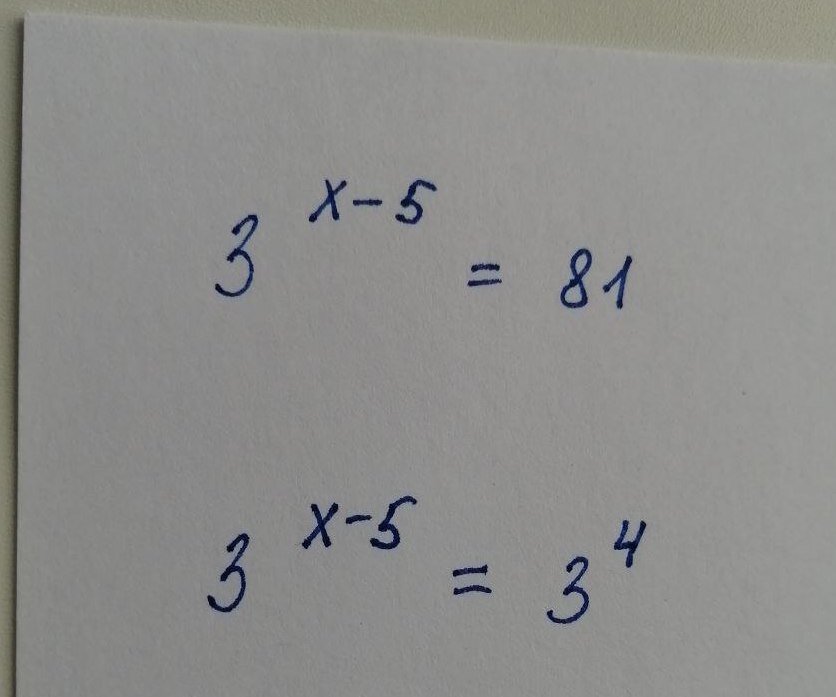 3^{x-5} = 81
3^{x-5} = 3^4